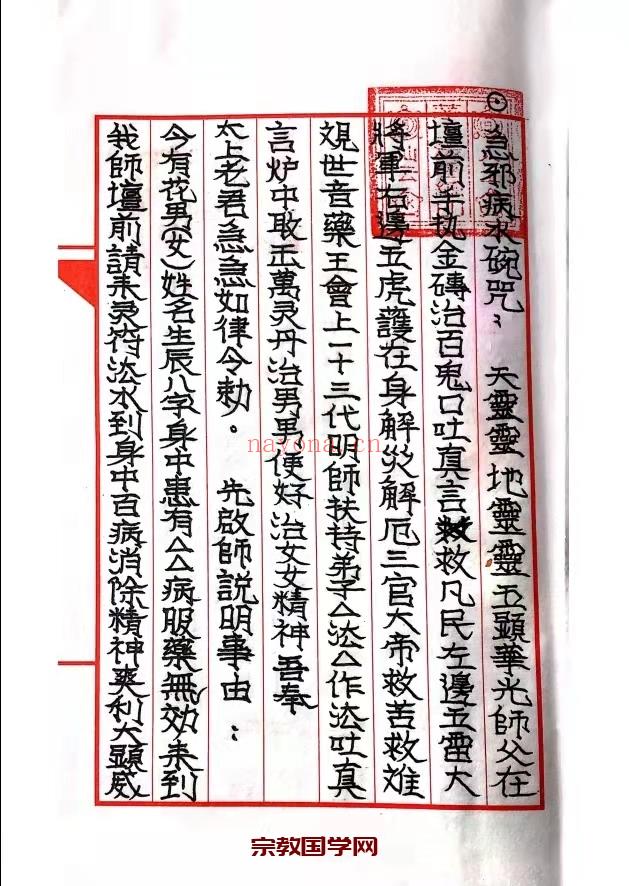 ⊙急邪病水碗咒: 天靈靈地靈靈五顯華光師父在
壇前手执金磚治百鬼口吐真言救凡民左邊五雷大
將軍右邊五虎護在身解災解厄三官大帝救苦救难
观世音藥王會上一十三代明師扶持弟子厶法厶作法吐真
言炉中敢正萬灵丹治男男便好治女女精神吾奉
太上老君急急如律令勅。 先啟師説明事由:
今有花男(女)姓名生辰八字身中患有厶厶病服藥無効来到
我師壇前請来灵符法水到身中百病消除精神爽利大顕威
nayona.cn
宗教国学网